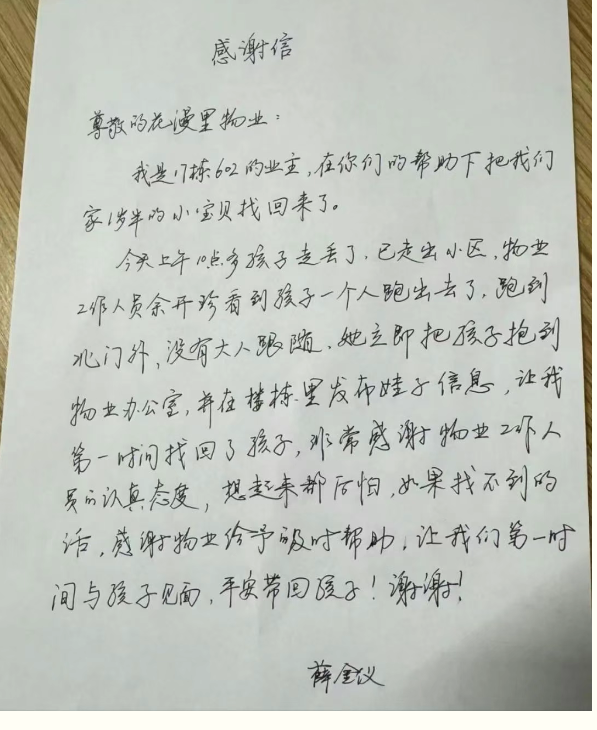 感谢信
尊敬的花漫里物业：
我是17栋602的业主，在你们的帮助下把我们
家1岁半的小宝贝找回来了。
今天上午10点多孩子走丢了，已走出小区，物业
工作人员余开珍看到孩子一个人跑出去了，跑到
北门外，没有大人跟随，她立即把孩子抱到
物业办公室，并在楼栋里发布娃子信息，让我
第一时间找回了孩子，非常感谢物业工作人
员的认真态度，想起来都后怕，如果找不到的
话，感谢物业给予及时帮助，让我们第一时
间与孩子见面，平安带回孩子！谢谢！
薛金仪